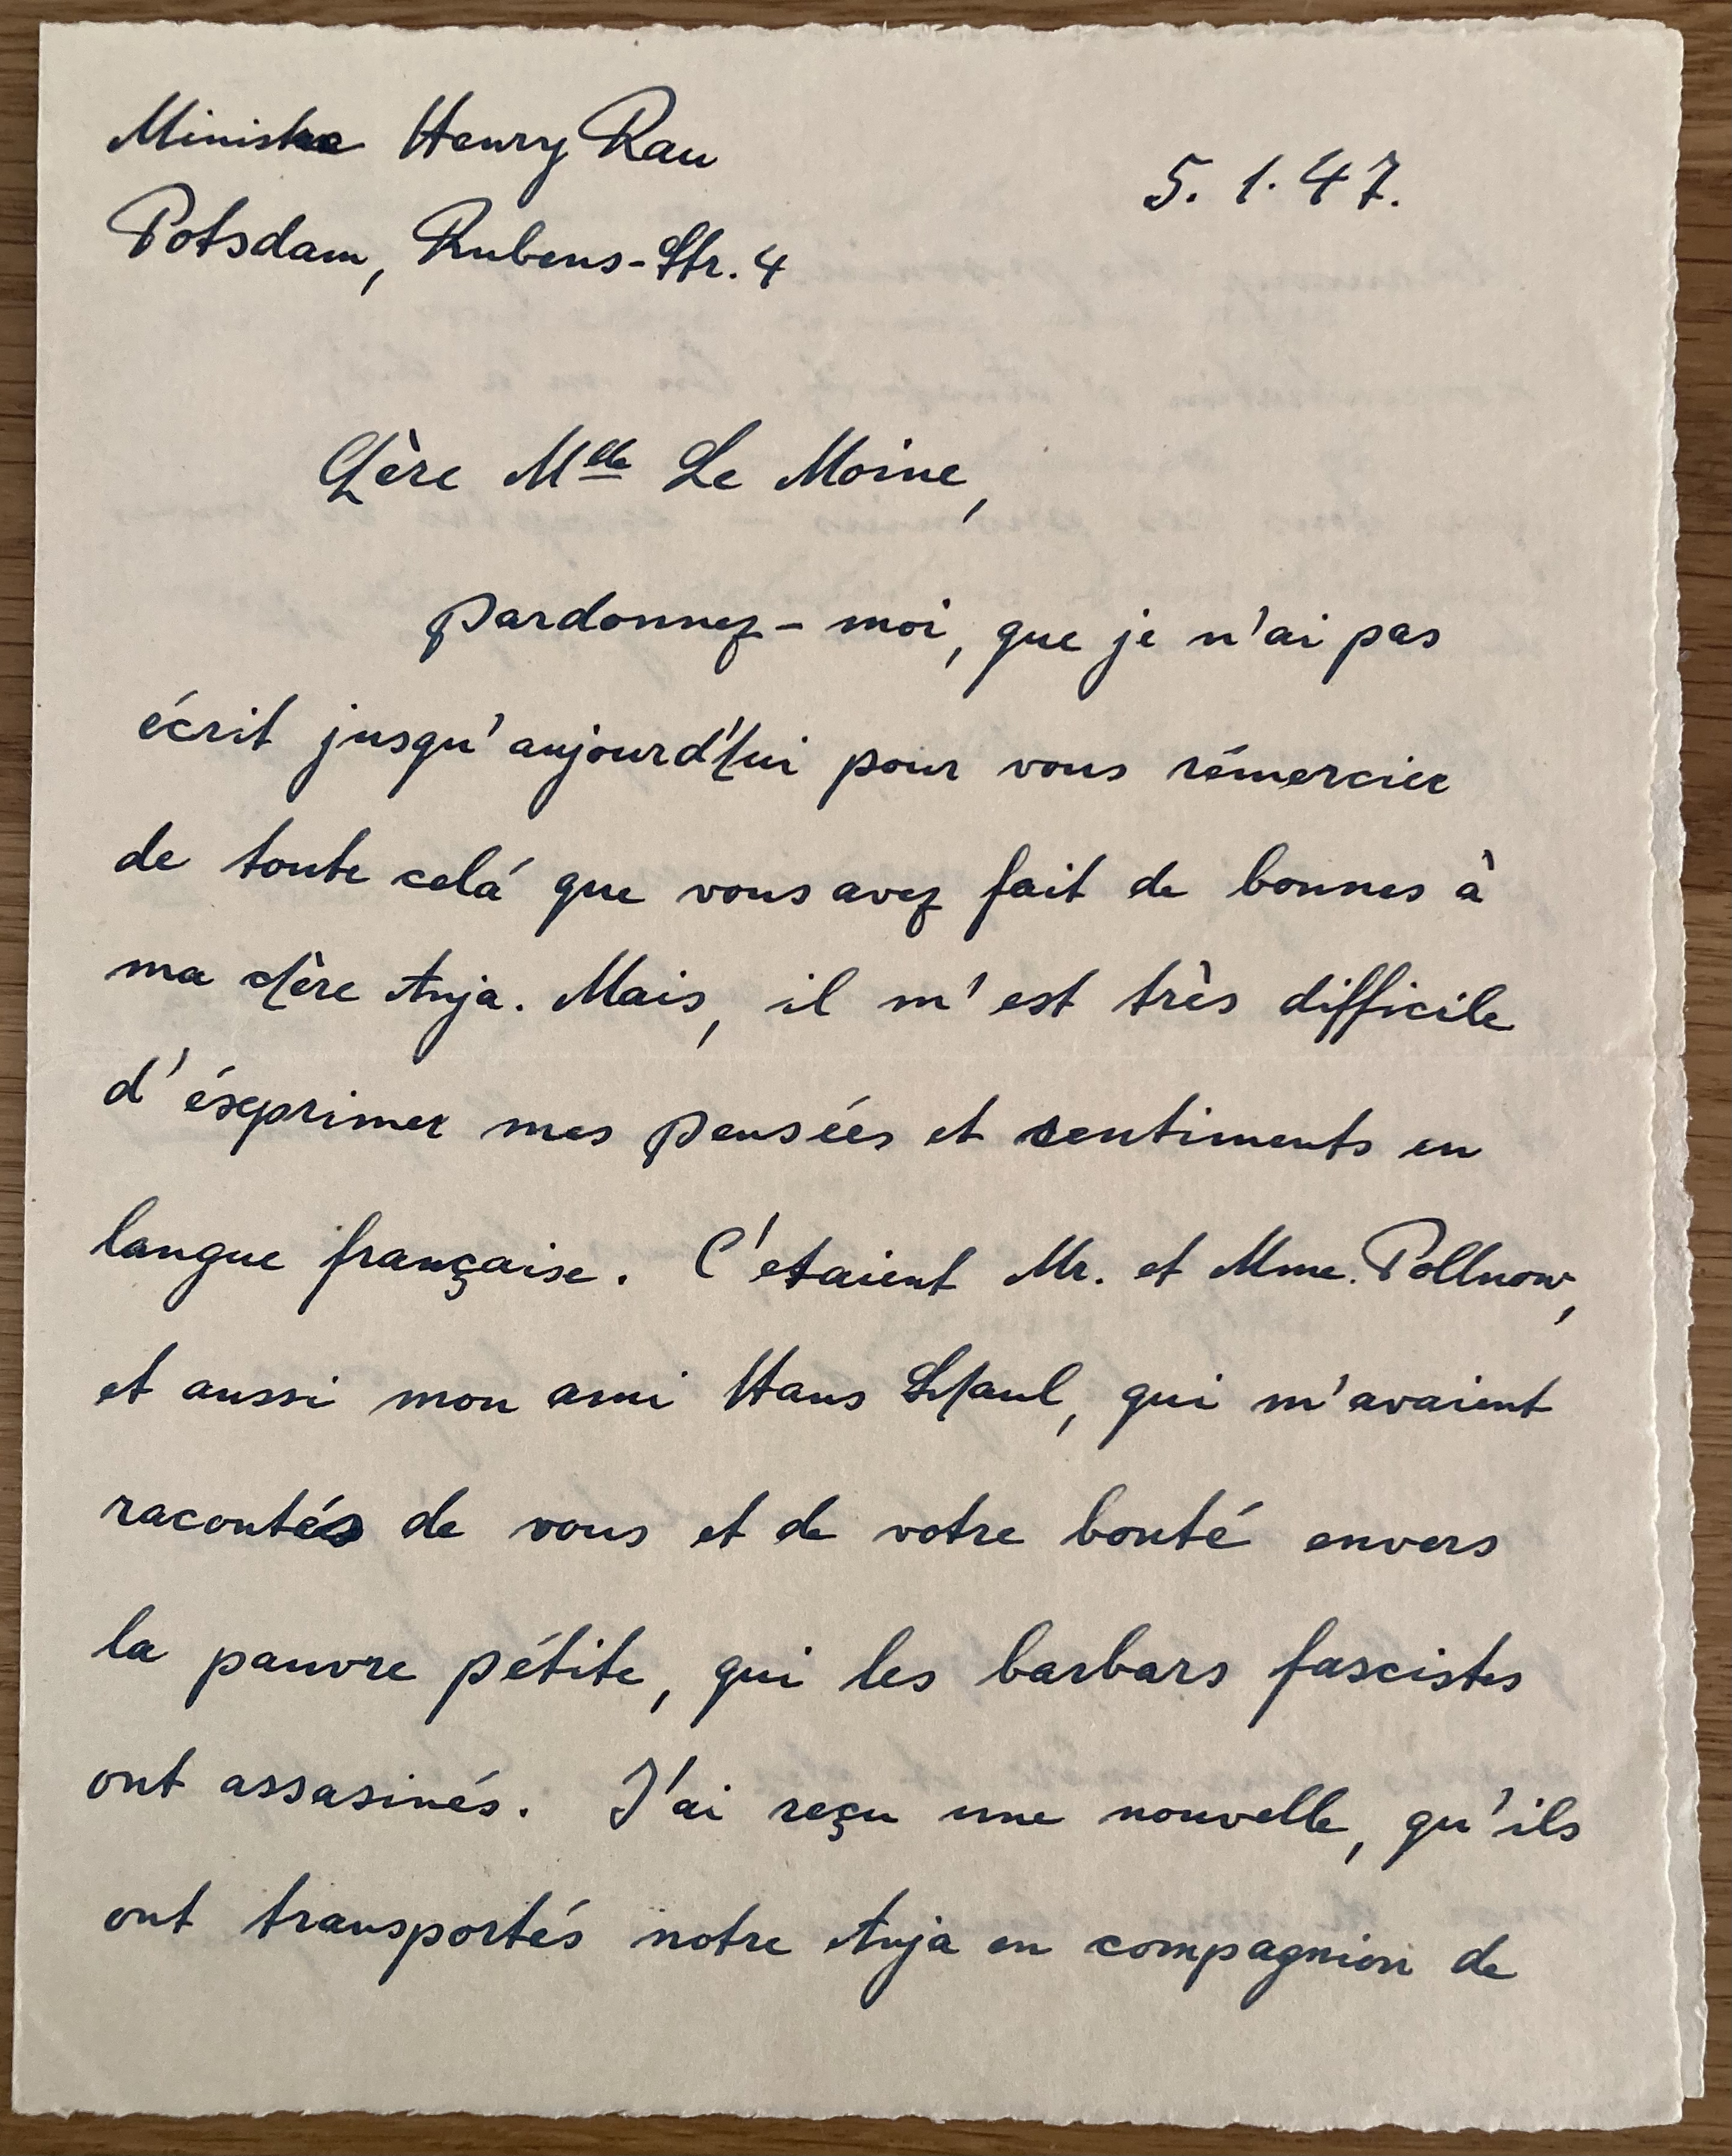 Ministre Henry Rau
5. 1. 47.
Potsdam, Rubens-Str. 4
Chère Mlle Le Moine,
pardonnez-moi, que je n'ai pas
écrit jusqu'aujourd'hui pour vous rémercier
de toute celá que vous avez fait de bonnes à
ma chère Anja. Mais, il m'est très difficile
d'éxprimer mes pensées et sentiments en
langue française. C'etaient Mr. et Mme. Pollnow,
et aussi mon ami Hans Schaul, qui m'avaient
racontés de vous et de votre bonté envers
la pauvre pétite, qui les barbars fascistes
ont assasinés. J'ai reçu une nouvelle, qu'ils
ont transportés notre Anja en compagnion de